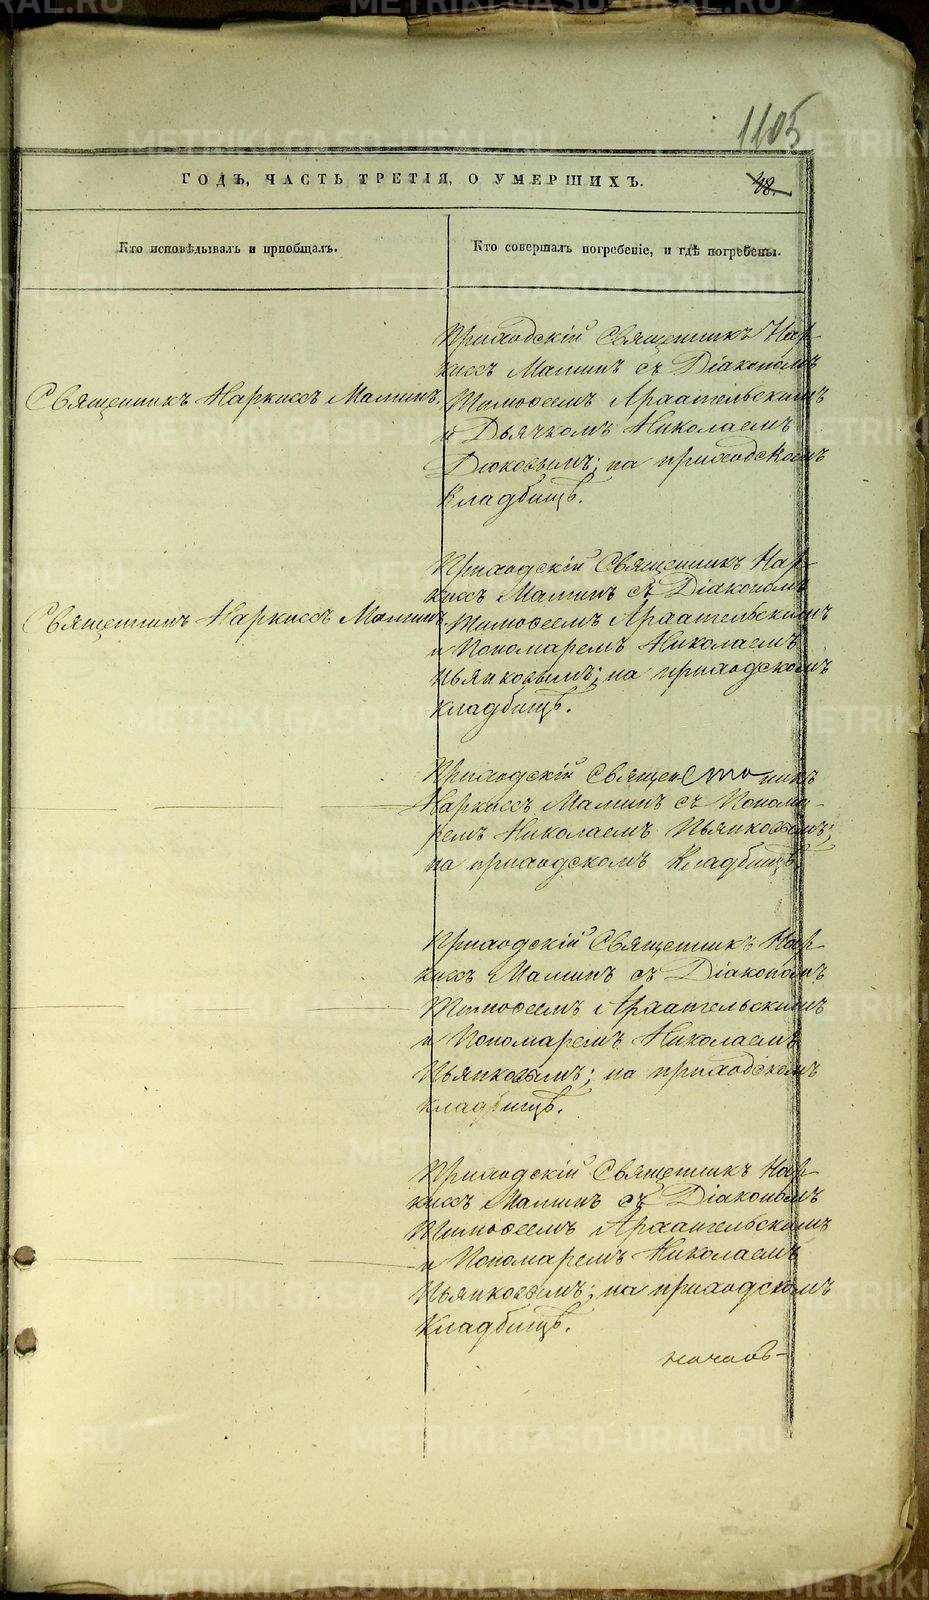 1105
ГОДЪ, ЧАСТЬ ТРЕТІЯ, О УМЕРШИХЪ.
48.
Кто исповѣдывалъ и приобщалъ.
Кто совершалъ погребеніе, и гдѣ погребены.
Священникъ Наркиссъ Маминъ.
Приходскій Священникъ Нар-
киссъ Маминъ съ Діакономъ
Тимофеемъ Архангельскимъ
и Дьячкомъ Николаемъ
Дюковымъ; на приходскомъ
Кладбищѣ.
Священникъ Наркиссъ Маминъ.
Приходскій Священникъ Нар-
киссъ Маминъ съ Діакономъ
Тимофеемъ Архангельскимъ
и Пономаремъ Николаемъ
Пьянковымъ; на приходскомъ
кладбищѣ.
Приходскій Священникъ
Наркиссъ Маминъ съ Понома-
ремъ Николаемъ Пьянковымъ;
на приходскомъ Кладбищѣ.
Приходскій Священникъ Нар-
киссъ Маминъ съ Діакономъ
Тимофеемъ Архангельскимъ
и Пономаремъ Николаемъ
Пьянковымъ; на приходскомъ
кладбищѣ.
Приходскій Священникъ Нар-
киссъ Маминъ съ Діакономъ
Тимофеемъ Архангельскимъ
и Пономаремъ Николаемъ
Пьянковымъ; на приходскомъ
Кладбищѣ.
METRIKI.GASO-URAL.RU